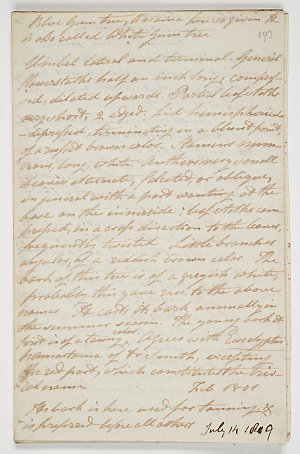 Blue Gum tree, because here so given &
is also called White gum tree
193
Umbel lateral and terminal. General
flowerstalks half an inch long, compress-
ed, dilated upwards. Partial leafstalks
very short, 2 edged. Lid hemispherical
depressed, terminating in a blunt point
of a reddish brown color. Stamens num-
erous, long, white. Anthers very small
Leaves alternate, falcated or oblique,
in general with a part wanting at the
base on the innerside: leafstalks com-
pressed, in a cross direction to the leaves
frequently twisted. Little branches
angular, of a reddish brown color. The
bark of this tree is of a greyish white,
probably this gave rise to the above
names. It casts its bark annually in
the summer season. The young bark at
first is of a tawny color. Agrees with Eucalyptus
haemastoma of Dr Smith, excepting
the red part, which constituted the Triv-
ial name
Feb 1801
Its bark is here used for tanning &
is preferred before all others
July 14 1809